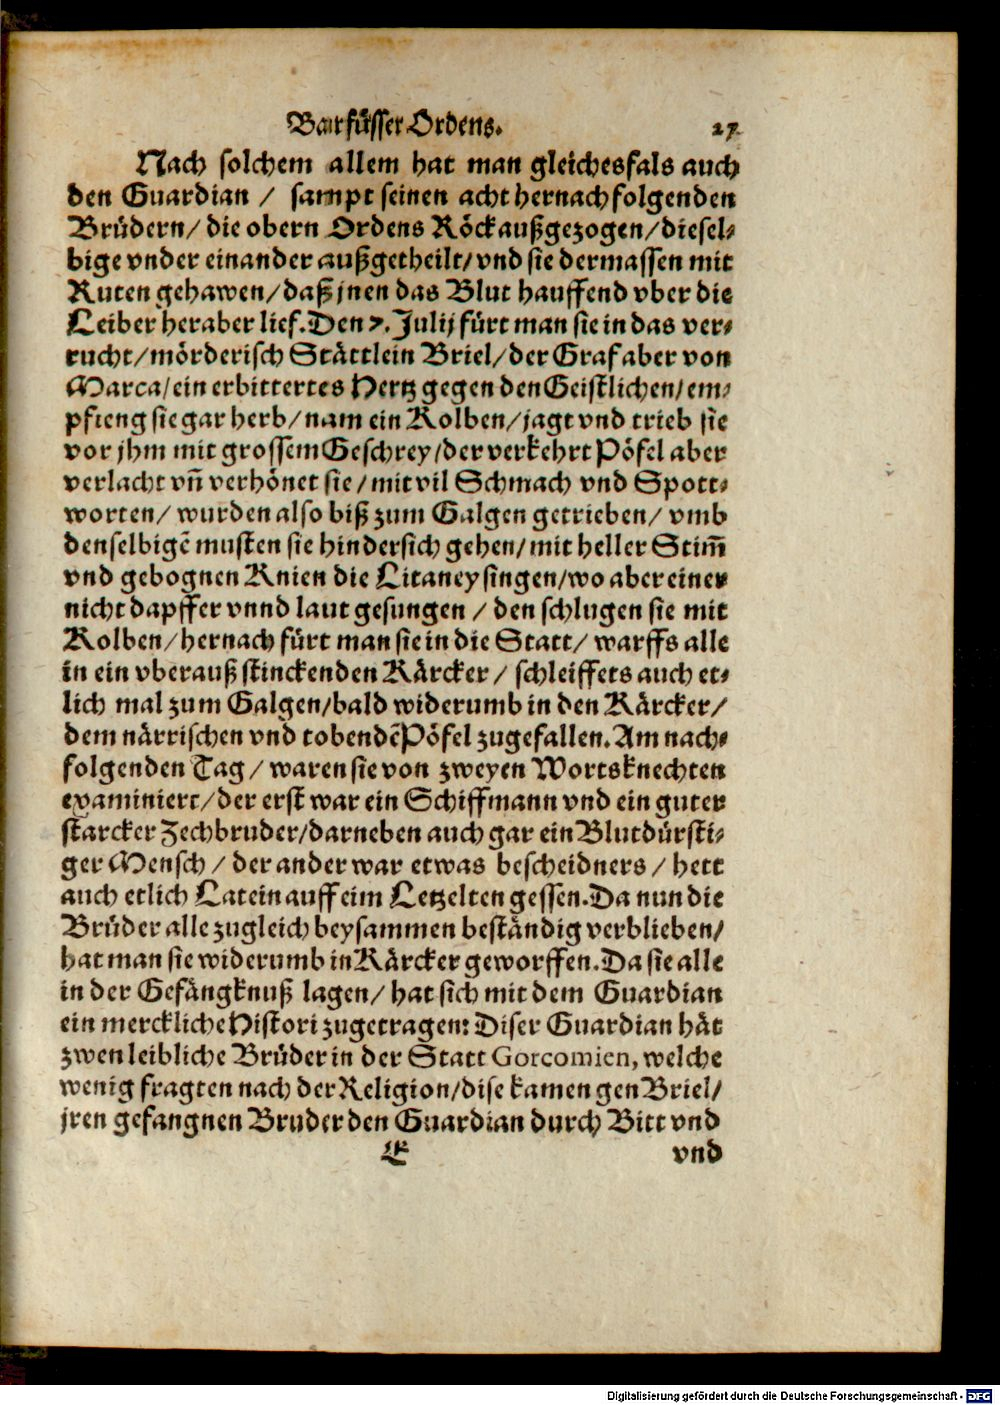 Barfüsser Ordens. 27
Nach solchem allem hat man gleichesfals auch
den Guardian / sampt seinen acht hernachfolgenden
Brüdern/ die obern Ordens Röck außgezogen/diesel⸗
bige vnder einander außgetheilt/vnd sie dermassen mit
Ruten gehawen/daß jnen das Blut hauffend vber die
Leiber heraber lief. Den 7. Julij fürt man sie in das ver⸗
rucht/mörderisch Stättlein Briel/der Graf aber von
Marca/ein erbittertes Hertz gegen den Geistlichen/em⸗
pfieng sie gar herb/nam ein Kolben/jagt vnd trieb sie
vor jhm mit grossem Geschrey/der verkehrt Pöfel aber
verlacht vñ verhönet sie/mit vil Schmach vnd Spott⸗
worten/wurden also biß zum Galgen getrieben/ vmb
denselbigẽ musten sie hindersich gehen/mit heller Stim̃
vnd gebognen Knien die Litaney singen/wo aber einer
nicht dapffer vnnd laut gesungen / den schlugen sie mit
Kolben/hernach fürt man sie in die Statt/ warffs alle
in ein vberauß stinckenden Kärcker / schleiffets auch et⸗
lich mal zum Galgen/bald widerumb in den Kärcker/
dem närrischen vnd tobendẽ Pöfel zugefallen. Am nach⸗
folgenden Tag / waren sie von zweyen Wortsknechten
examiniert/der erst war ein Schiffmann vnd ein guter
starcker Zechbruder/darneben auch gar ein Blutdürsti⸗
ger Mensch / der ander war etwas bescheidners / hett
auch etlich Latein auff eim Letzelten gessen. Da nun die
Brüder alle zugleich beysammen beständig verblieben/
hat man sie widerumb in Kärcker geworffen. Da sie alle
in der Gefängknuß lagen/ hat sich mit dem Guardian
ein merckliche Histori zugetragen: Diser Guardian hät
zwen leibliche Brüder in der Statt Gorcomien, welche
wenig fragten nach der Religion/dise kamen gen Briel/
jren gefangnen Bruder den Guardian durch Bitt vnd
E vnd
Digitalisierung gefördert durch die Deutsche Forschungsgemeinschaft - DFG